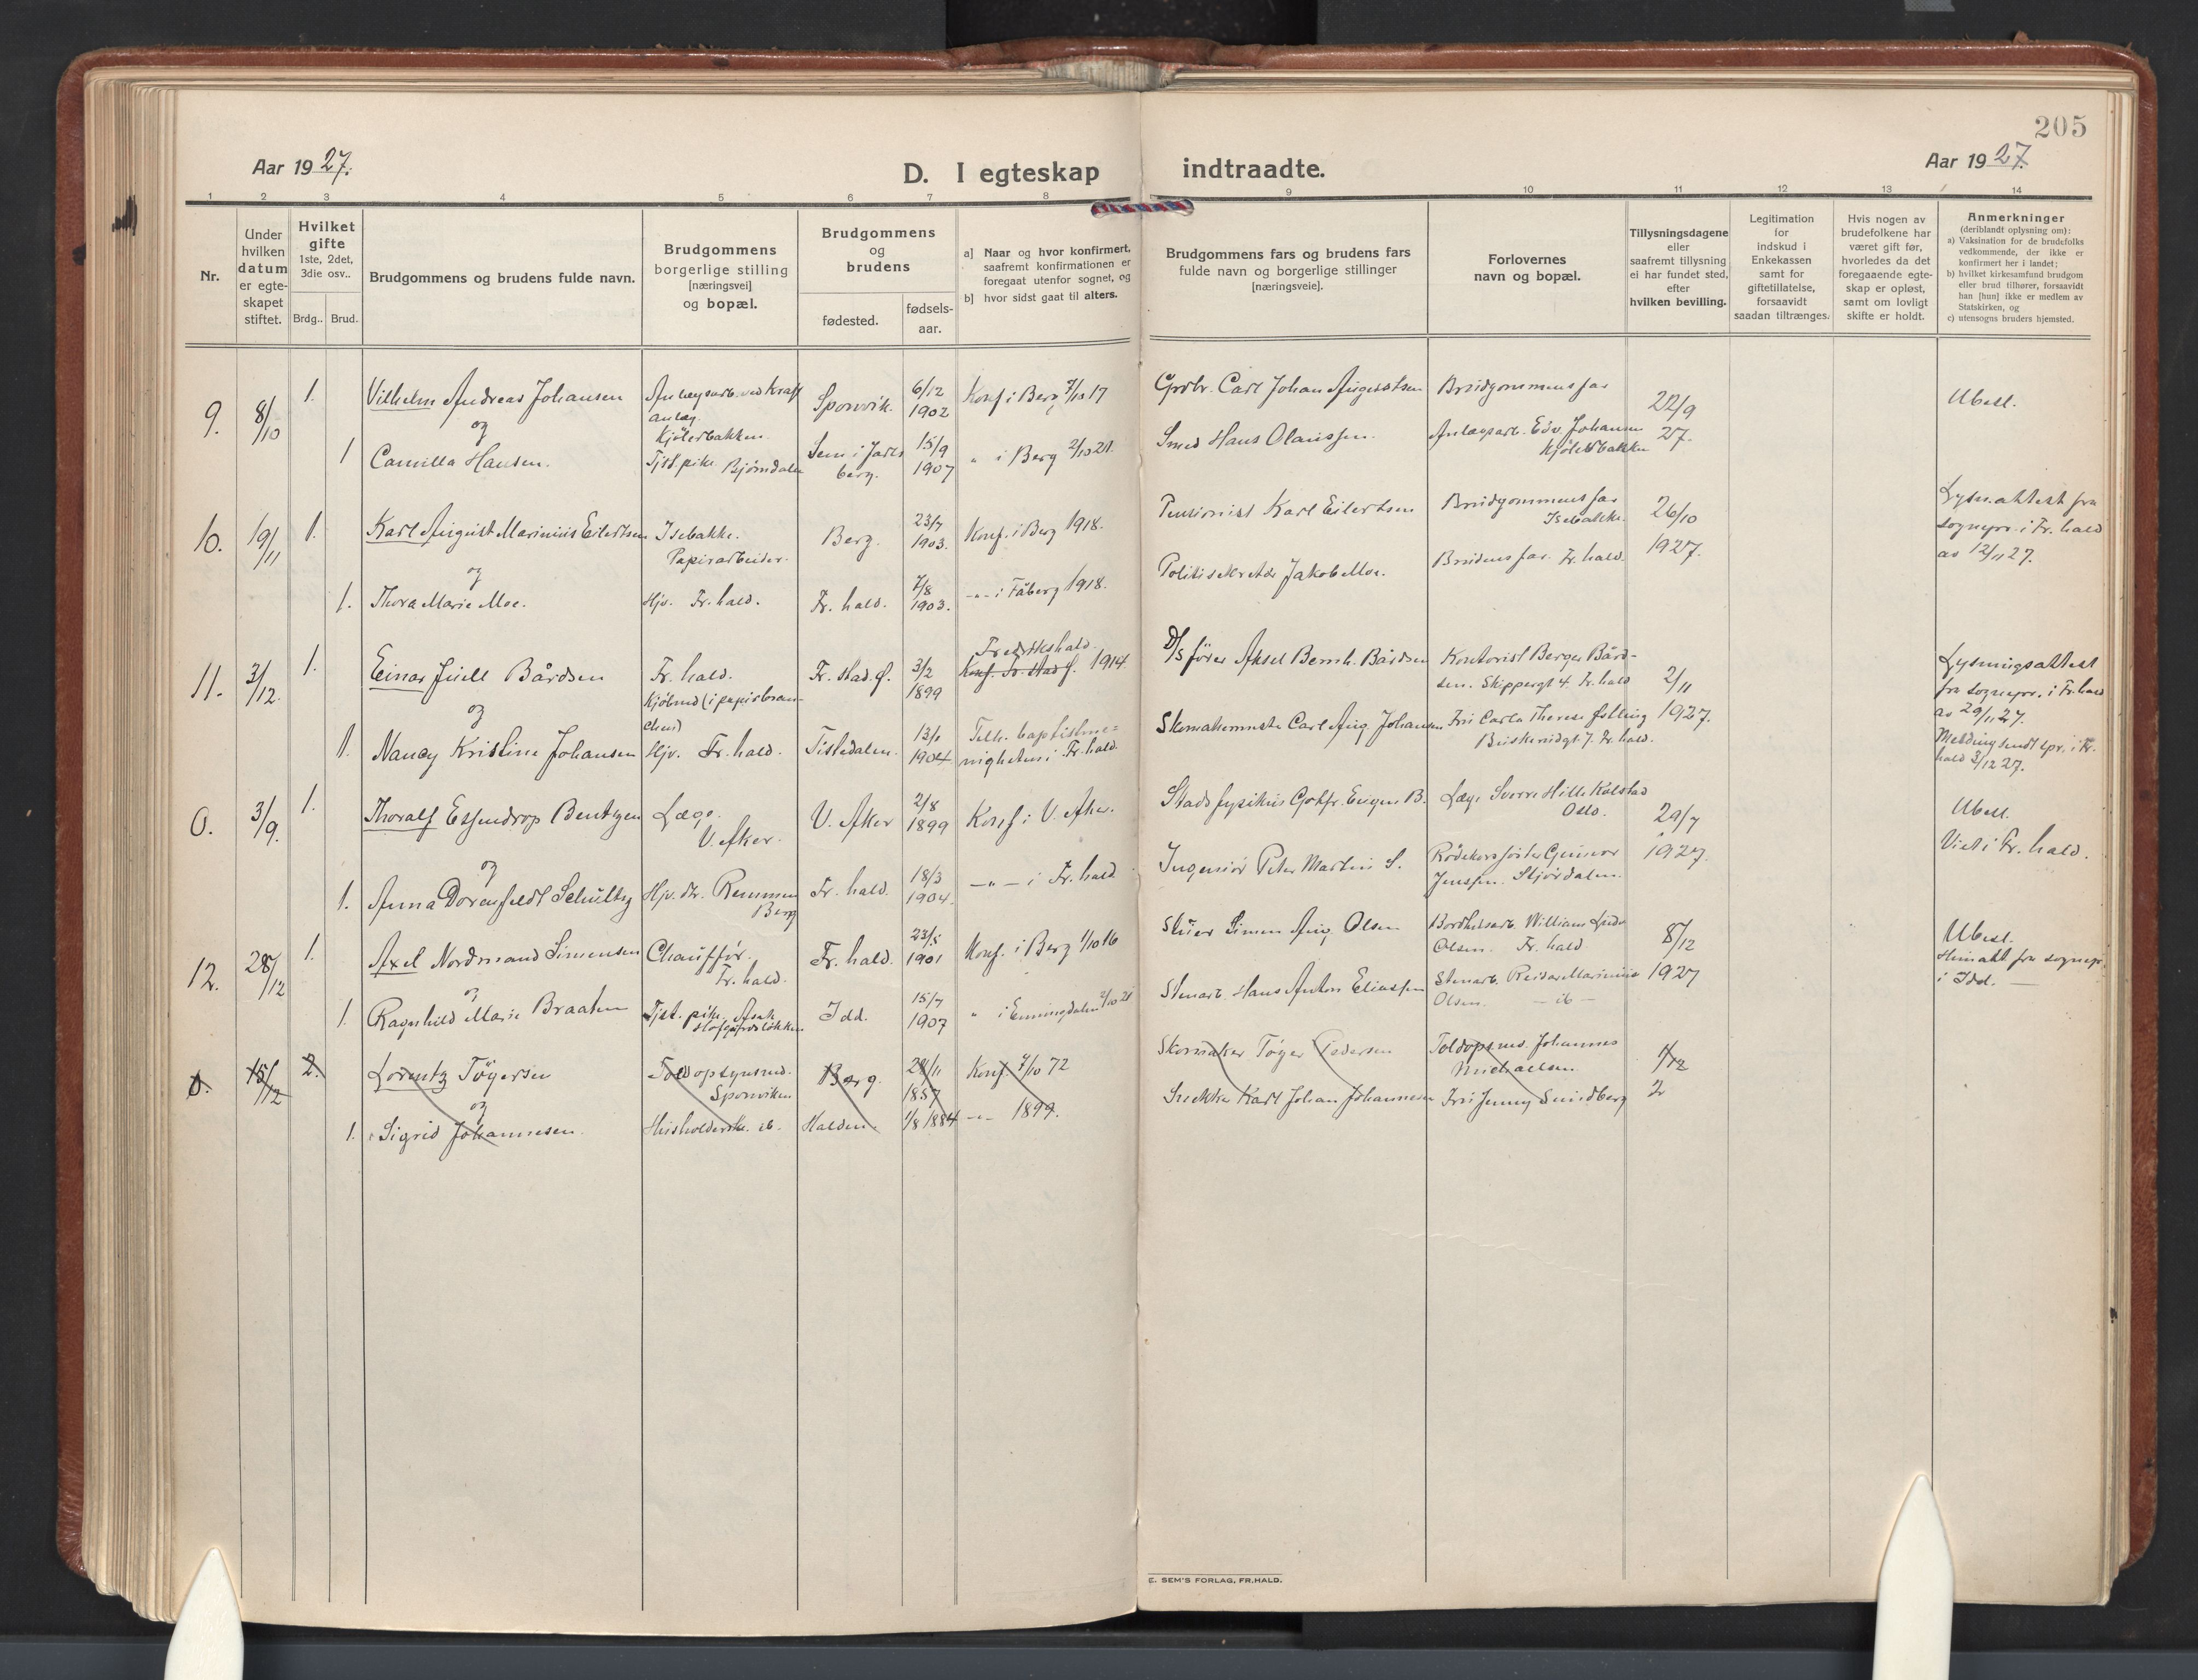 205
Aar 1927.
D. I egteskap indtraadte.
Aar 1927.
1 2 3 4 5 6 7 8 9 10 11 12 13 14
Nr.
Under
hvilken
datum
er egte-
skapet
stiftet.
Hvilket
gifte
1ste, 2det,
3die osv..
Brdg.. Brud.
Brudgommens og brudens fulde navn.
Brudgommens
borgerlige stilling
[næringsvei]
og bopæl.
Brudgommens
og
brudens
fødested.
fødsels-
aar.
a] Naar og hvor konfirmert,
saafremt konfirmationen er
foregaat utenfor sognet, og
b] hvor sidst gaat til alters.
Brudgommens fars og brudens fars
fulde navn og borgerlige stillinger
[næringsveie].
Forlovernes
navn og bopæl.
Tillysningsdagene
eller
saafremt tillysning
ei har fundet sted,
efter
hvilken bevilling.
Legitimation
for
indskud i
Enkekassen
samt for
giftetillatelse,
forsaavidt
saadan tiltrænges.
Hvis nogen av
brudefolkene har
været gift før,
hvorledes da det
foregaaende egte-
skap er opløst,
samt om lovligt
skifte er holdt.
Anmerkninger
(deriblandt oplysning om):
a) Vaksination for de brudefolks
vedkommende, der ikke er
konfirmert her i landet;
b) hvilket kirkesamfund brudgom
eller brud tilhører, forsaavidt
han [hun] ikke er medlem av
Statskirken, og
c) utensogns bruders hjemsted.
9. 8/10 1. Vilhelm Andreas Johansen
og
1 Camilla Hansen.
Anlægsarb. ved Kraft
anlæg
Kjølerbakken.
Tjst. pike Bjørndalen
Sponvik. 6/12
1902
Sem i Jarls
berg. 15/9
1907
Konf i Berg 7/10 17
" i Berg 2/10 21.
Grdbr. Carl Johan Augustsen
Smed Hans Olaussen.
Brudgommens far
Anlægsarb. Edv. Johansen
Kjølerbakken
22/9
27.
Ubesl.
10. 19/11 1. Karl August Marinius Eilertsen
og
1. Thora Marie Moe.
Isebakke.
Papirarbeider.
Hjv. Fr. hald.
Berg. 23/7
1903.
Fr. hald. 7/8
1903.
Konf. i Berg 1918.
-"- i Fåberg 1918.
Pensionist Karl Eilertsen
Politisekretær Jakob Moe.
Brudgommens far
Isebakke.
Brudens far. Fr. hald.
26/10
1927.
Lysn.attest fra
sognepr. i Fr. hald
av 12/11 27.
11. 3/12. 1. Einar Juell Bårdsen
og
1. Nancy Kristine Johansen
Fr. hald.
Kjøbmd (i papirbran-
chen)
Hjv. Fr. hald.
Fr. stad. 3/2
1899
Tistedalen. 13/1
1904
Fredrikshald.
Konf. Fr. stad 1914
Tilh. baptistme-
nigheten i Fr. hald.
D/S fører Aksel Bernh. Bårdsen
Skomakermester Carl Aug. Johansen
Kontorist Berger Bård-
sen. Skippergt 4. Fr. hald
Frk Carla Therese
7. Fr. hald.
2/11
1927.
Lysningsattest
fra sognepr. i Fr. hald
av 29/11 27.
Melding sendt spr. i Fr.
hald 3/12 27.
0. 3/9. 1. Thoralf Essendrop Bentzen
og
1. Anna Dorenfeldt Schultz
Læge.
V. Aker.
Hjv. dt. Remmen
Berg
V. Aker 2/8
1899
Fr. hald. 18/3
1904.
Konf i V. Aker.
-"- i Fr. hald
Stadsfysikus Gotfr. Eugen B.
Ingeniør Peter Martin S.
Læge Sverre Hille Kolstad
Oslo.
Rødekorssøster Gunvor
Jenssen. Stjørdalen.
29/7
1927.
Ubesl.
Viet i Fr. hald.
12. 28/12 1. Axel Nordmand Simensen
og
1. Ragnhild Marie Braaten
Chauffør.
Fr. hald.
Tjst. pike. Asak
Fr. hald. 23/5
1901
Idd. 15/7
1907
Konf. i Berg 1/10 16
" i Enningdalen 2/10 21
Simen Aug. Olsen
Stenarb. Hans Anton Eliassen
William Ludv.
Olsen. Fr. hald.
Stenarb. Reidar Marinius
Olsen. - ib -
8/12
1927
Ubesl.
fra sognepr.
i Idd. -
0. 15/12 2. Lorentz Tøgersen
og
1. Sigrid Johannesen.
Toldopsynsmd.
Sponviken
Husholderske. ib.
Berg. 28/11
1857
Halden. 1/8 1884
Konf. 7/10 72
-"- 1899.
Skomaker Tøger Pedersen
Snekker Karl Johan Johannesen
Toldopsmd. Johannes
Michaelsen.
Frk Jenny Sundberg
1/12
2
E. SEM'S FORLAG, FR.HALD.